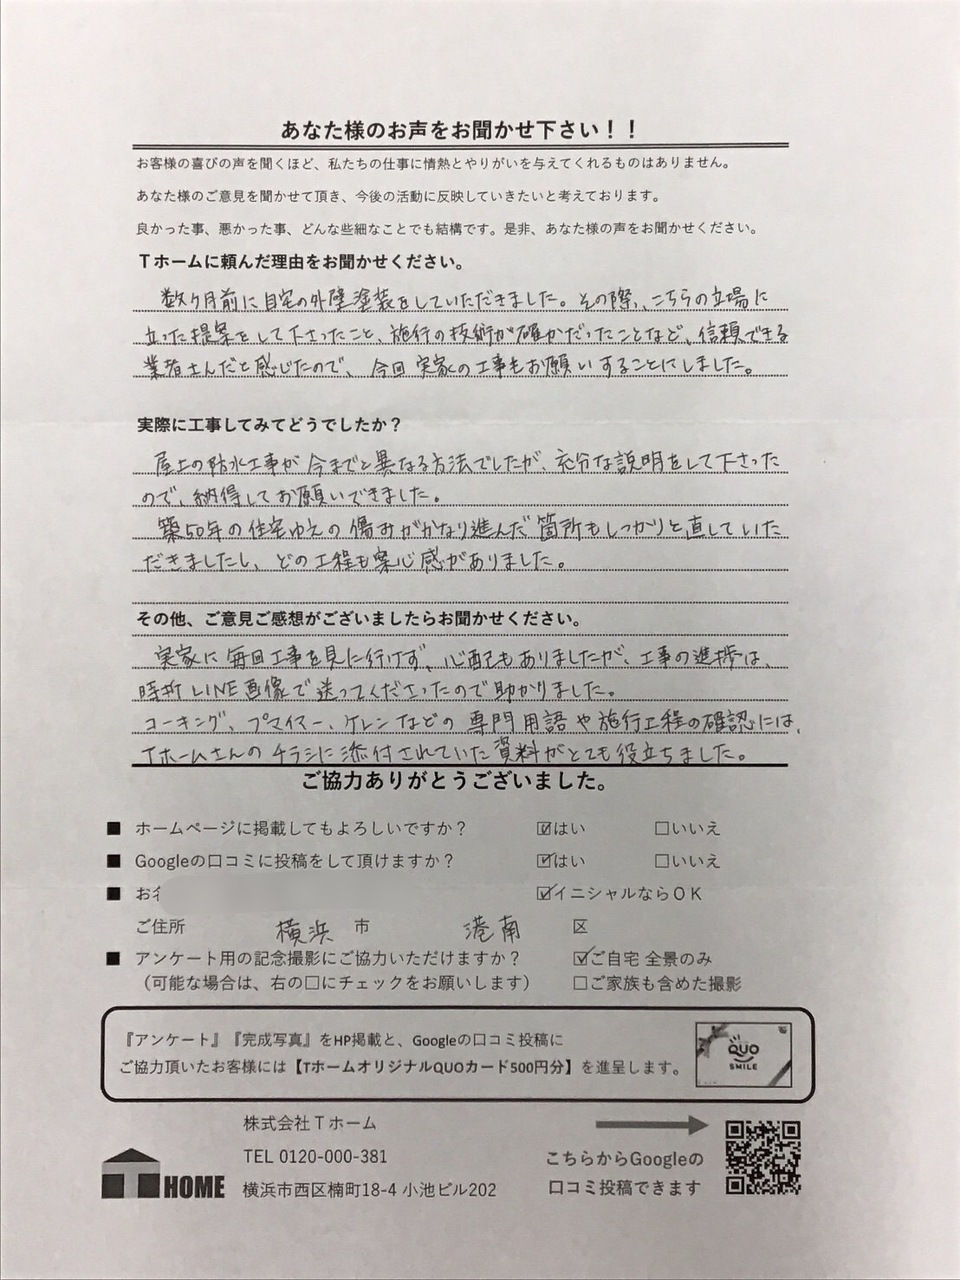 あなた様のお声をお聞かせ下さい！！
お客様の喜びの声を聞くほど、私たちの仕事に情熱とやりがいを与えてくれるものはありません。
あなた様のご意見を聞かせて頂き、今後の活動に反映していきたいと考えております。
良かった事、悪かった事、どんな些細なことでも結構です。是非、あなた様の声をお聞かせください。
Tホームに頼んだ理由をお聞かせください。
数ヶ月前に自宅の外壁塗装をしていただきました。その際、こちらの立場に
立った提案をして下さったこと、施行の技術が確かだったことなど、信頼できる
業者さんだと感じたので、今回実家の工事もお願いすることにしました。
実際に工事してみてどうでしたか？
屋上の防水工事が今までと異なる方法でしたが、充分な説明をして下さった
ので、納得してお願いできました。
築50年の住宅ゆえの傷みがかなり進んだ箇所もしっかりと直していた
だきましたし、どの工程も安心感がありました。
その他、ご意見ご感想がございましたらお聞かせください。
実家に毎回工事を見に行けず、心配もありましたが、工事の進捗は、
時折LINE画像で送ってくださったので助かりました。
コーキング、プマイマー、ケレンなどの専門用語や施行工程の確認には、
Tホームさんのチラシに添付されていた資料がとても役立ちました。
ご協力ありがとうございました。
■ ホームページに掲載してもよろしいですか？ ☑はい □いいえ
■ Googleの口コミに投稿をして頂けますか？ ☑はい □いいえ
■ お ☑イニシャルならOK
ご住所 横浜 市 港南 区
■ アンケート用の記念撮影にご協力いただけますか？ ☑ご自宅 全景のみ
（可能な場合は、右の□にチェックをお願いします） □ご家族も含めた撮影
『アンケート』『完成写真』をHP掲載と、Googleの口コミ投稿に
ご協力頂いたお客様には【TホームオリジナルQUOカード500円分】を進呈します。
QUO
SMILE
株式会社Tホーム
TEL 0120-000-381
横浜市西区楠町18-4 小池ビル202
T HOME
こちらからGoogleの
口コミ投稿できます